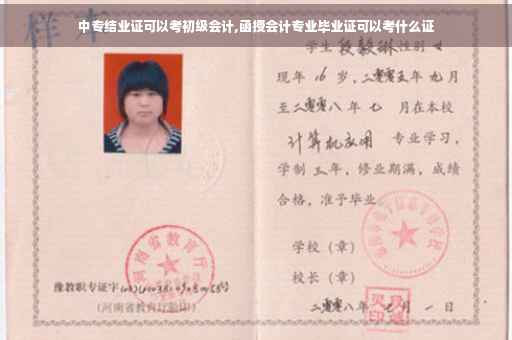 中专结业证可以考初级会计,函授会计专业毕业证可以考什么证
样本
学生 段毅琳 性别 女
现年 16 岁，二零零五年 九月
至二零零八年 七 月在本校
计算机应用 专业学习，
学制 三年，修业期满，成绩
合格，准予毕业。
学校（章）
校长（章）
河南省教育厅
豫教职专证字
（河南省教育厅验印）
二零零八年 七 月 一 日